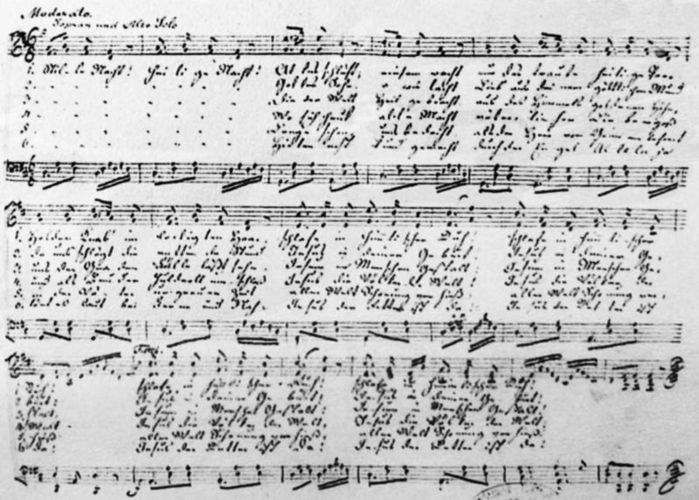 Moderato.
Sopran und Alto Solo
1. Stille Nacht! Heilige Nacht! Alles schläft, einsam wacht nur das traute heilige Paar
2. Gottes Sohn o wie lacht Lieb aus deinem göttlichen Mund
3. Die der Welt Heil gebracht aus des Himmels goldenen Höhn
4. Wo sich heut alle Macht
5. Lange schon uns bedacht als der Herr vom Grimme befreit
6. Hirten erst kund gemacht durch der Engel Alleluja
1. Holder Knab im lockigten Haar, schlafe in himmlischer Ruh! schlafe in himmlischer
2. Da uns schlägt die rettende Stund Jesus in deiner Geburt! Jesus in deiner Ge-
3. uns der Gnaden Fülle läßt sehn, Jesum in Menschen Gestalt! Jesum in Menschen Ge-
4. und als Bruder huldvoll umschloß Jesus die Völker der Welt! Jesus die Völker der
5. in der Väter urgrauer Zeit aller Welt Schonung verhieß! aller Welt Schonung ver-
6. Jesus der Retter ist da! Jesus der Retter ist
1. Ruh! schlafe in himmlischer Ruh! schlafe in himmlischer Ruh!
2. burt! Jesus in deiner Geburt! Jesus in deiner Geburt!
3. stalt! Jesum in Menschen Gestalt! Jesum in Menschen Gestalt!
4. Welt! Jesus die Völker der Welt! Jesus die Völker der Welt!
5. hieß! aller Welt Schonung verhieß! aller Welt Schonung verhieß!
6. da! Jesus der Retter ist da! Jesus der Retter ist da!